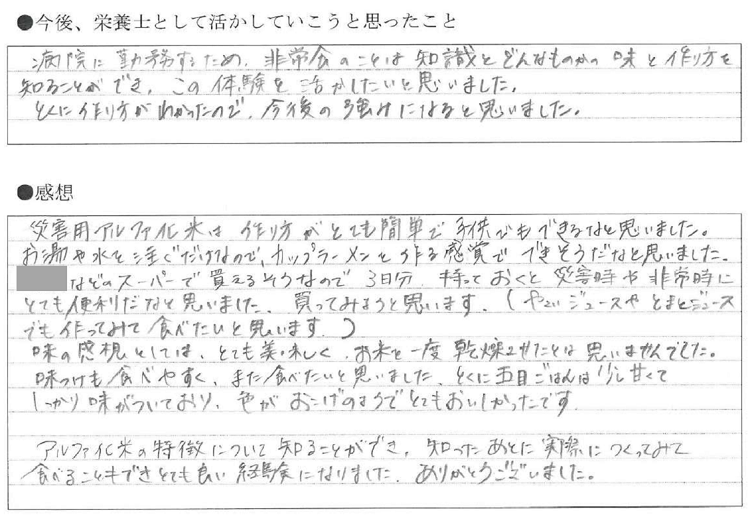 ●今後、栄養士として活かしていこうと思ったこと
病院に勤務するため、非常食のことは知識とどんなものかの味と作り方を
知ることができ、この体験を活かしたいと思いました。
とくに作り方がわかったので、今後の強みになると思いました。
●感想
災害用アルファ化米は作り方がとても簡単で子供でもできるなと思いました。
お湯や水を注ぐだけなので、カップラーメンを作る感覚でできそうだなと思いました。
などのスーパーで買えるそうなので3日分、持っておくと災害時や非常時に
とても便利だなと思いました。買ってみようと思います。(やさいジュースやとまとジュース
でも作ってみて食べたいと思います。)
味の感想としては、とても美味しく、お米を一度乾燥させたとは思いませんでした。
味つけも食べやすく、また食べたいと思いました。とくに五目ごはんは少し甘くて
しっかり味がついており、色がおこげのようでとてもおいしかったです。
アルファ化米の特徴について知ることができ、知ったあとに実際につくってみて
食べることもできとても良い経験になりました。ありがとうございました。